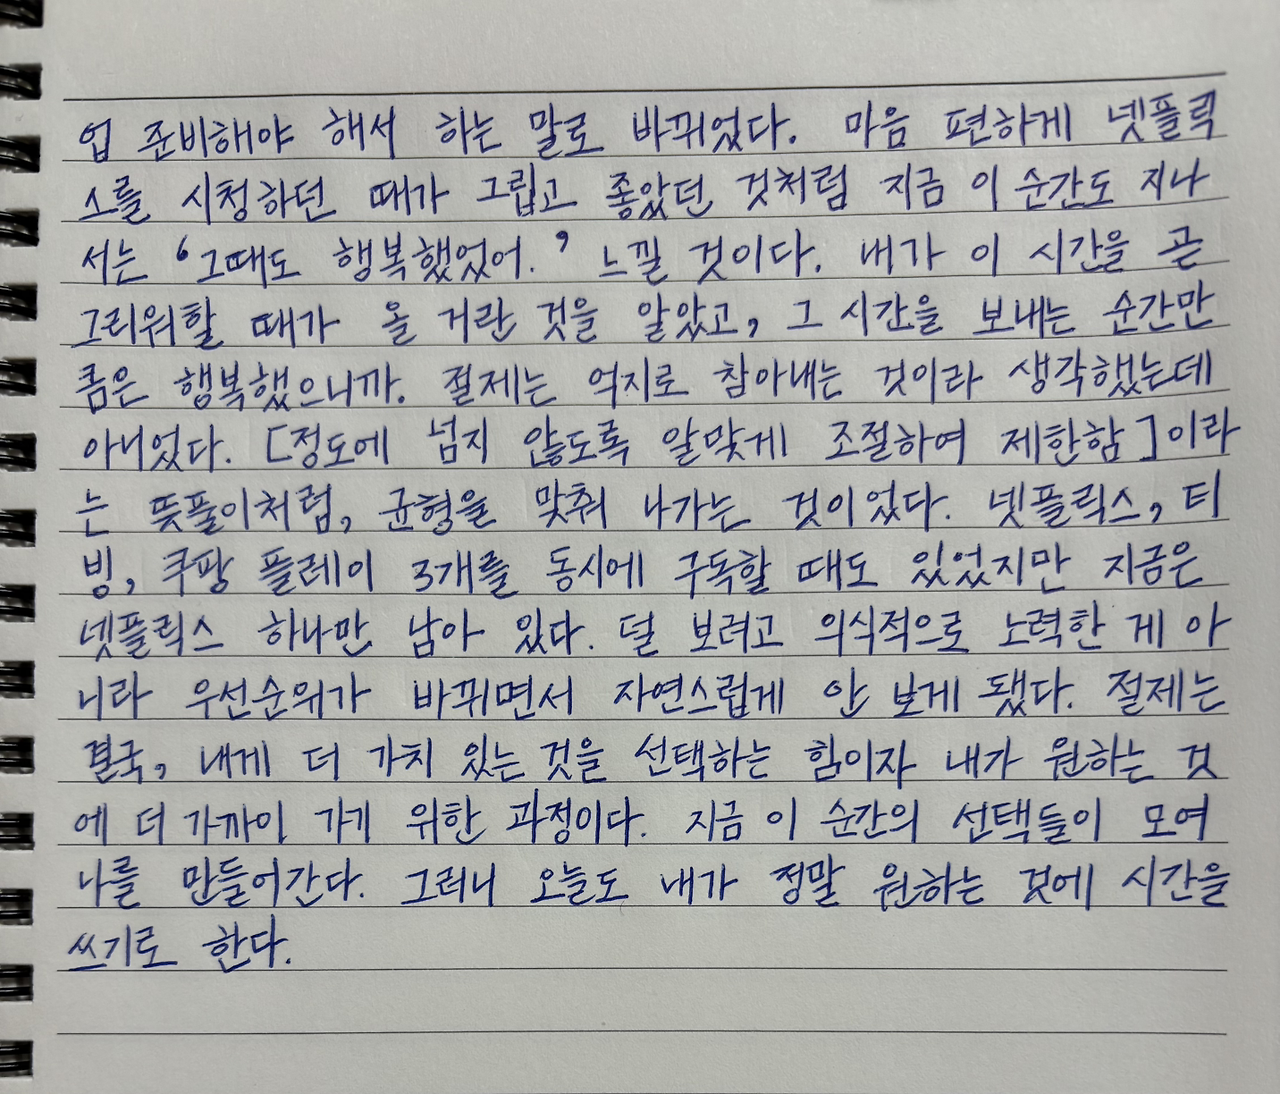 업 준비해야 해서 하는 말로 바뀌었다. 마음 편하게 넷플릭
스를 시청하던 때가 그립고 좋았던 것처럼 지금 이 순간도 지나
서는 '그때도 행복했었어.' 느낄 것이다. 내가 이 시간을 곧
그리워할 때가 올 거란 것을 알았고, 그 시간을 보내는 순간만
큼은 행복했으니까. 절제는 억지로 참아내는 것이라 생각했는데
아니었다. [정도에 넘지 않도록 알맞게 조절하여 제한함]이라
는 뜻풀이처럼, 균형을 맞춰 나가는 것이었다. 넷플릭스, 티
빙, 쿠팡 플레이 3개를 동시에 구독할 때도 있었지만 지금은
넷플릭스 하나만 남아 있다. 덜 보려고 의식적으로 노력한 게 아
니라 우선순위가 바뀌면서 자연스럽게 안 보게 됐다. 절제는
결국, 내게 더 가치 있는 것을 선택하는 힘이자 내가 원하는 것
에 더 가까이 가기 위한 과정이다. 지금 이 순간의 선택들이 모여
나를 만들어간다. 그러니 오늘도 내가 정말 원하는 것에 시간을
쓰기로 한다.